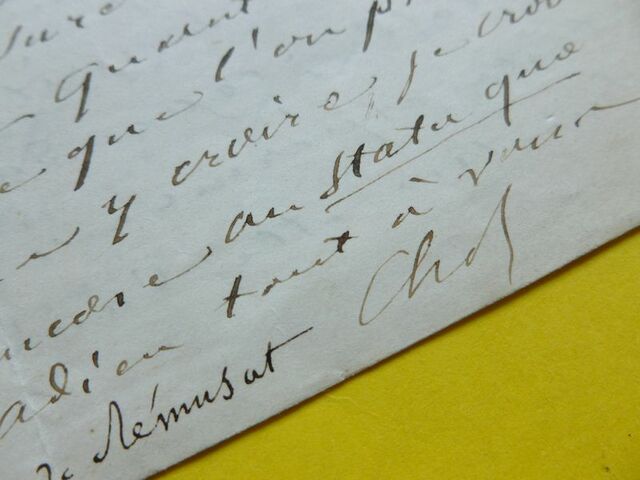 quant
que l'on p
y croire, je croi
encore au statu quo
adieu tout à vous
Ch d
de Rémusat